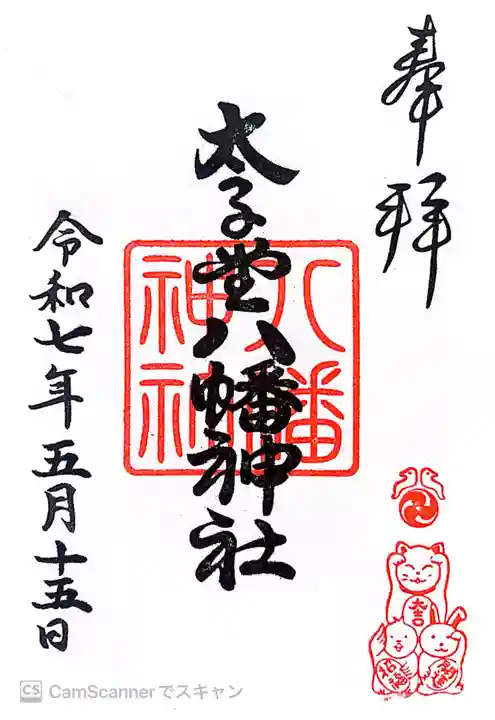 奉拝
太子堂八幡神社
八幡
神社
令和七年五月十五日
大吉
CS CamScannerでスキャン